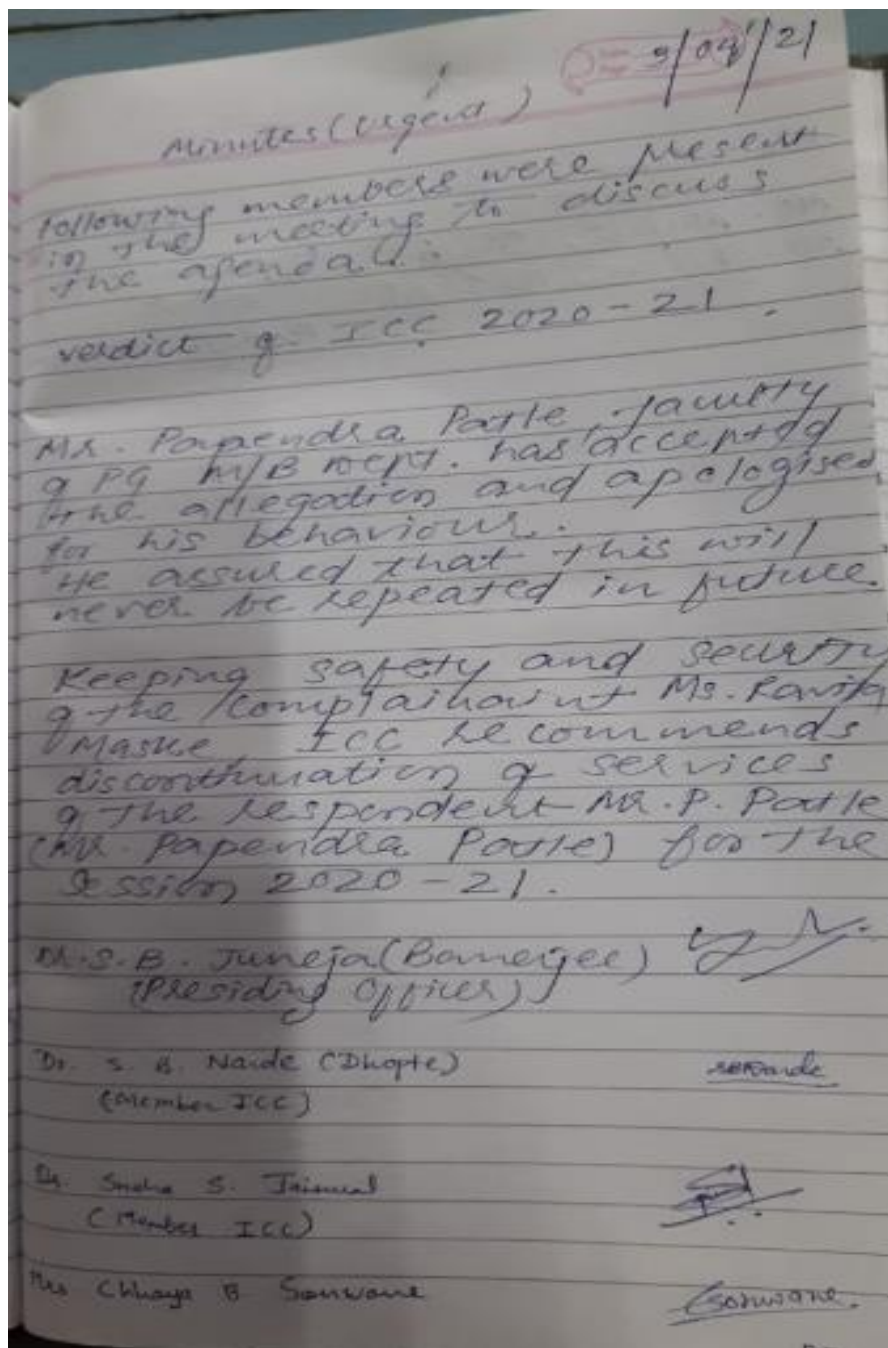 9/04/21
Minutes (Urgent)
following members were present
in the meeting to discuss
the agenda.
verdict of ICC 2020-21.
Mr. Papendra Patle, faculty
of PG M/B Dept. has accepted
the allegation and apologised
for his behaviour.
He assured that this will
never be repeated in future.
Keeping safety and security
of the complainaint Ms. Kavita
Maske ICC recommends
discontinuation of services
of the respondent Mr. P. Patle
(Mr. Papendra Patle) for the
Session 2020-21.
Dr. S. B. Juneja (Banerjee)
(Presiding Officer)
Dr. S. B. Narde (Dhopte)
(Member ICC)
Dr. Sneha S. Jaiswal
(Member ICC)
Mrs Chhaya B Sonwane
Csonwane.